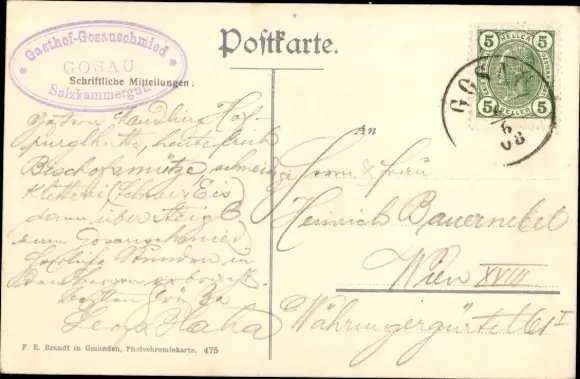 Gasthof-Gosauschmied
GOSAU
Salzkammergut
Postkarte.
5 HELLER 5
5 HELLER 5
GOSAU
6
08
Schriftliche Mitteilungen:
Gestern
heute früh
Bischofsmütze, schwierige
Kletterei (Schnee, Eis
dann über Steigl
zum Gosauschmied.
Herrliche Stunden in
den Bergen
besten Grüße
Leop. Blaha
An
Herrn & Frau
Heinrich Bauernebel
Wien XVIII
Währingergürtel 61 I
F. E. Brandt in Gmunden, Photochromiekarte. 475